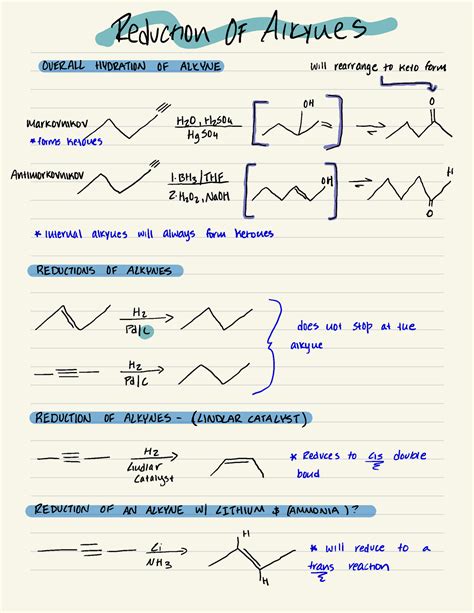 Reduction Of Alkynes
OVERALL HYDRATION OF ALKYNE
Will rearrange to keto form
Markovnikov
*forms ketones
H2O, H2SO4
HgSO4
OH
O
Antimarkovnikov
1. BH3/THF
2. H2O2, NaOH
OH
H
O
* Internal alkynes will always form ketones
REDUCTIONS OF ALKYNES
H2
Pd/C
does not stop at the
alkyne
H2
Pd/C
REDUCTION OF ALKYNES - (LINDLAR CATALYST)
H2
Lindlar
Catalyst
* Reduces to cis double
Z
bond
REDUCTION OF AN ALKYNE W/ LITHIUM & (AMMONIA)?
Li
NH3
H
H
* will reduce to a
trans reaction
E